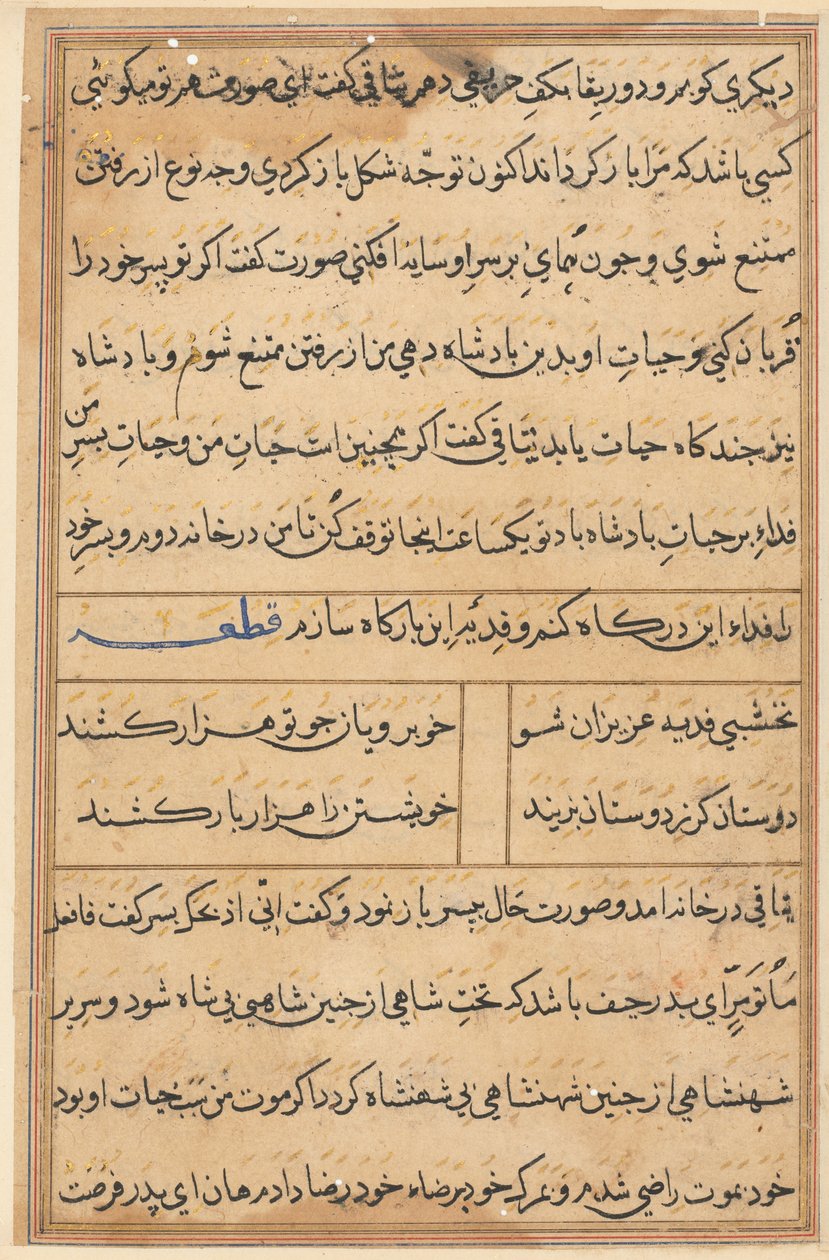 دیکري کو بمرو دو ربقا بکف حریفي دهم یتاقي کفت اي صورت هر تو میکوئي
کسي باشد که مرا باز کرداند اکنون توجّه شکل باز کردي وجه نوع از رفتن
ممتنع شوي وجون همايِ برسرِ او سایه افکني صورت کفت اکر تو پسر خود را
قربان کني و حیاتِ او بدین بادشاه دهي من از رفتن ممتنع شوم و بادشاه
نیز جند کاه حیات یابد یتاقي کفت اکر همچنین است حیاتِ من و حیاتِ بسرِ من
فداءِ بر حیاتِ بادشاه باد تو یکساعت اینجا توقف کُن تا من در خانه دوم و بسر خود
را فداء این درکاه کنم و فدئیه این بارکاه سازم قطعه
نخشبي فدیه عزیزان شو خوبرویان جو تو هزار کشند
دوستان کز دوستان بزیند خویشتن را هزار بار کشند
یتاقي در خانه امد و صورت حال بپسر باز نمود و کفت انّي اذبحک بسر کفت فافعل
ما تومر اي بدر حیف باشد که تختِ شاهي از جنین شاهي بي شاه شود و سریر
شهنشاهي از جنین شهنشاهي بي شهنشاه کردد اکر موت من سبب حیات او بود
خود بموت راضي شدم و بمرک خود برضاء خود رضا دادم هان اي پدر فرصت